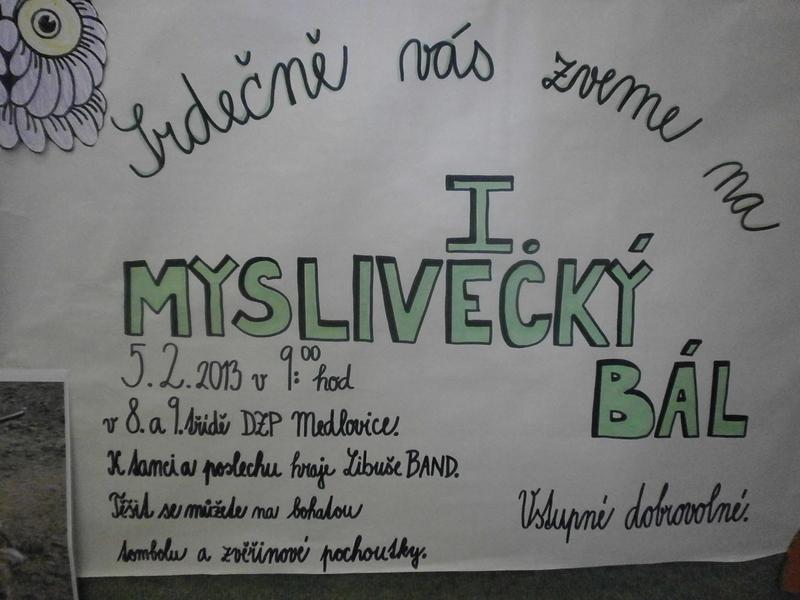 Srdečně vás zveme na
I.
MYSLIVEČKÝ
BÁL
5.2.2013 v 9:00 hod
v 8. a 9. třídě DZP Medlovice.
K tanci a poslechu hraje Libuše BAND.
Těšit se můžete na bohatou
tombolu a zvěřinové pochoutky.
Vstupné dobrovolné.